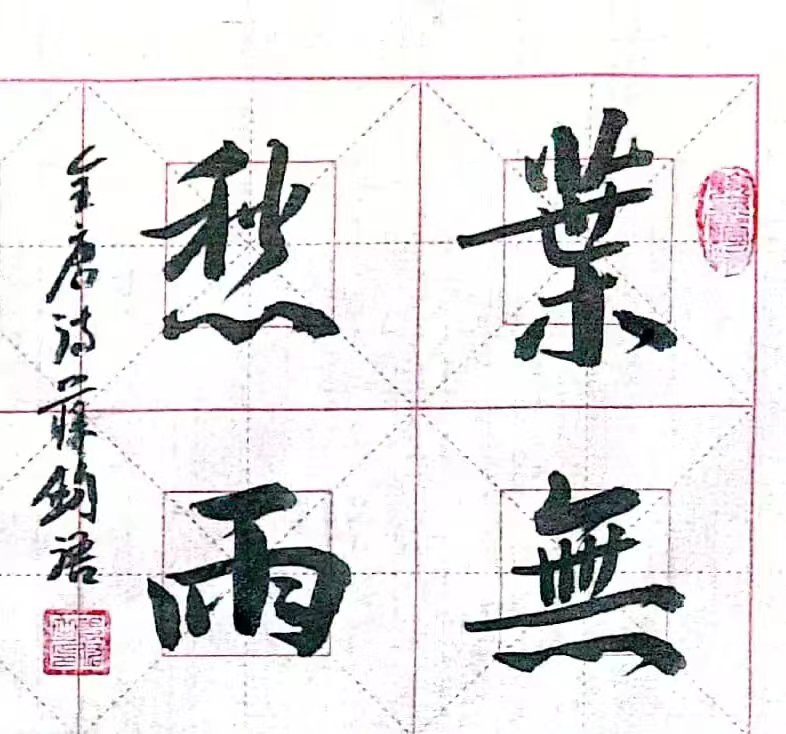 葉無
愁雨
全唐詩蔣鈞語